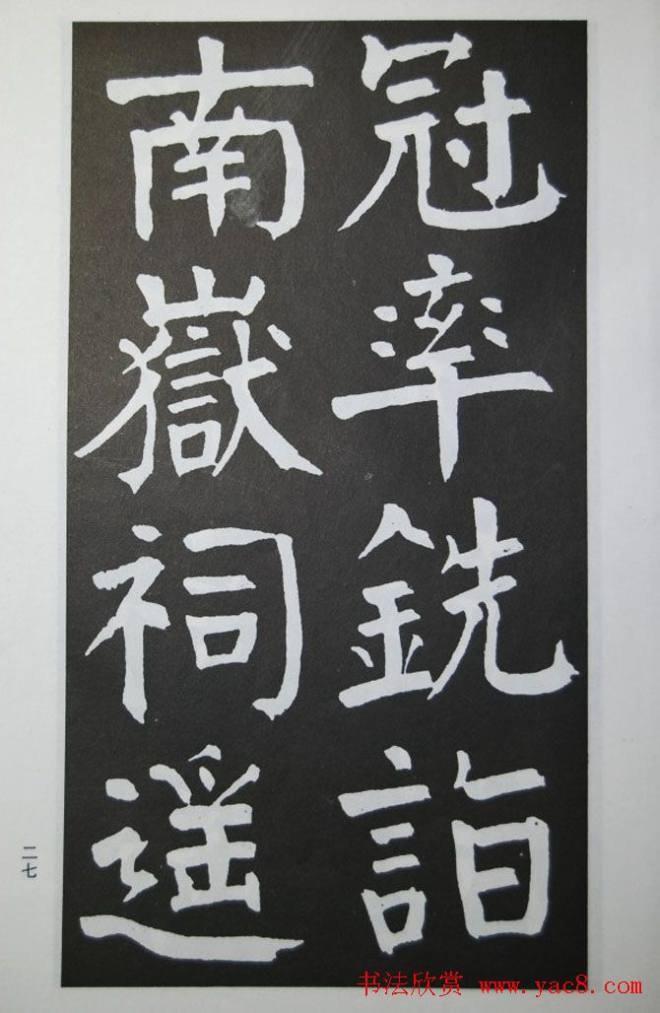 冠率銑詣
南嶽祠遥
二七
书法欣赏 www.yac8.com